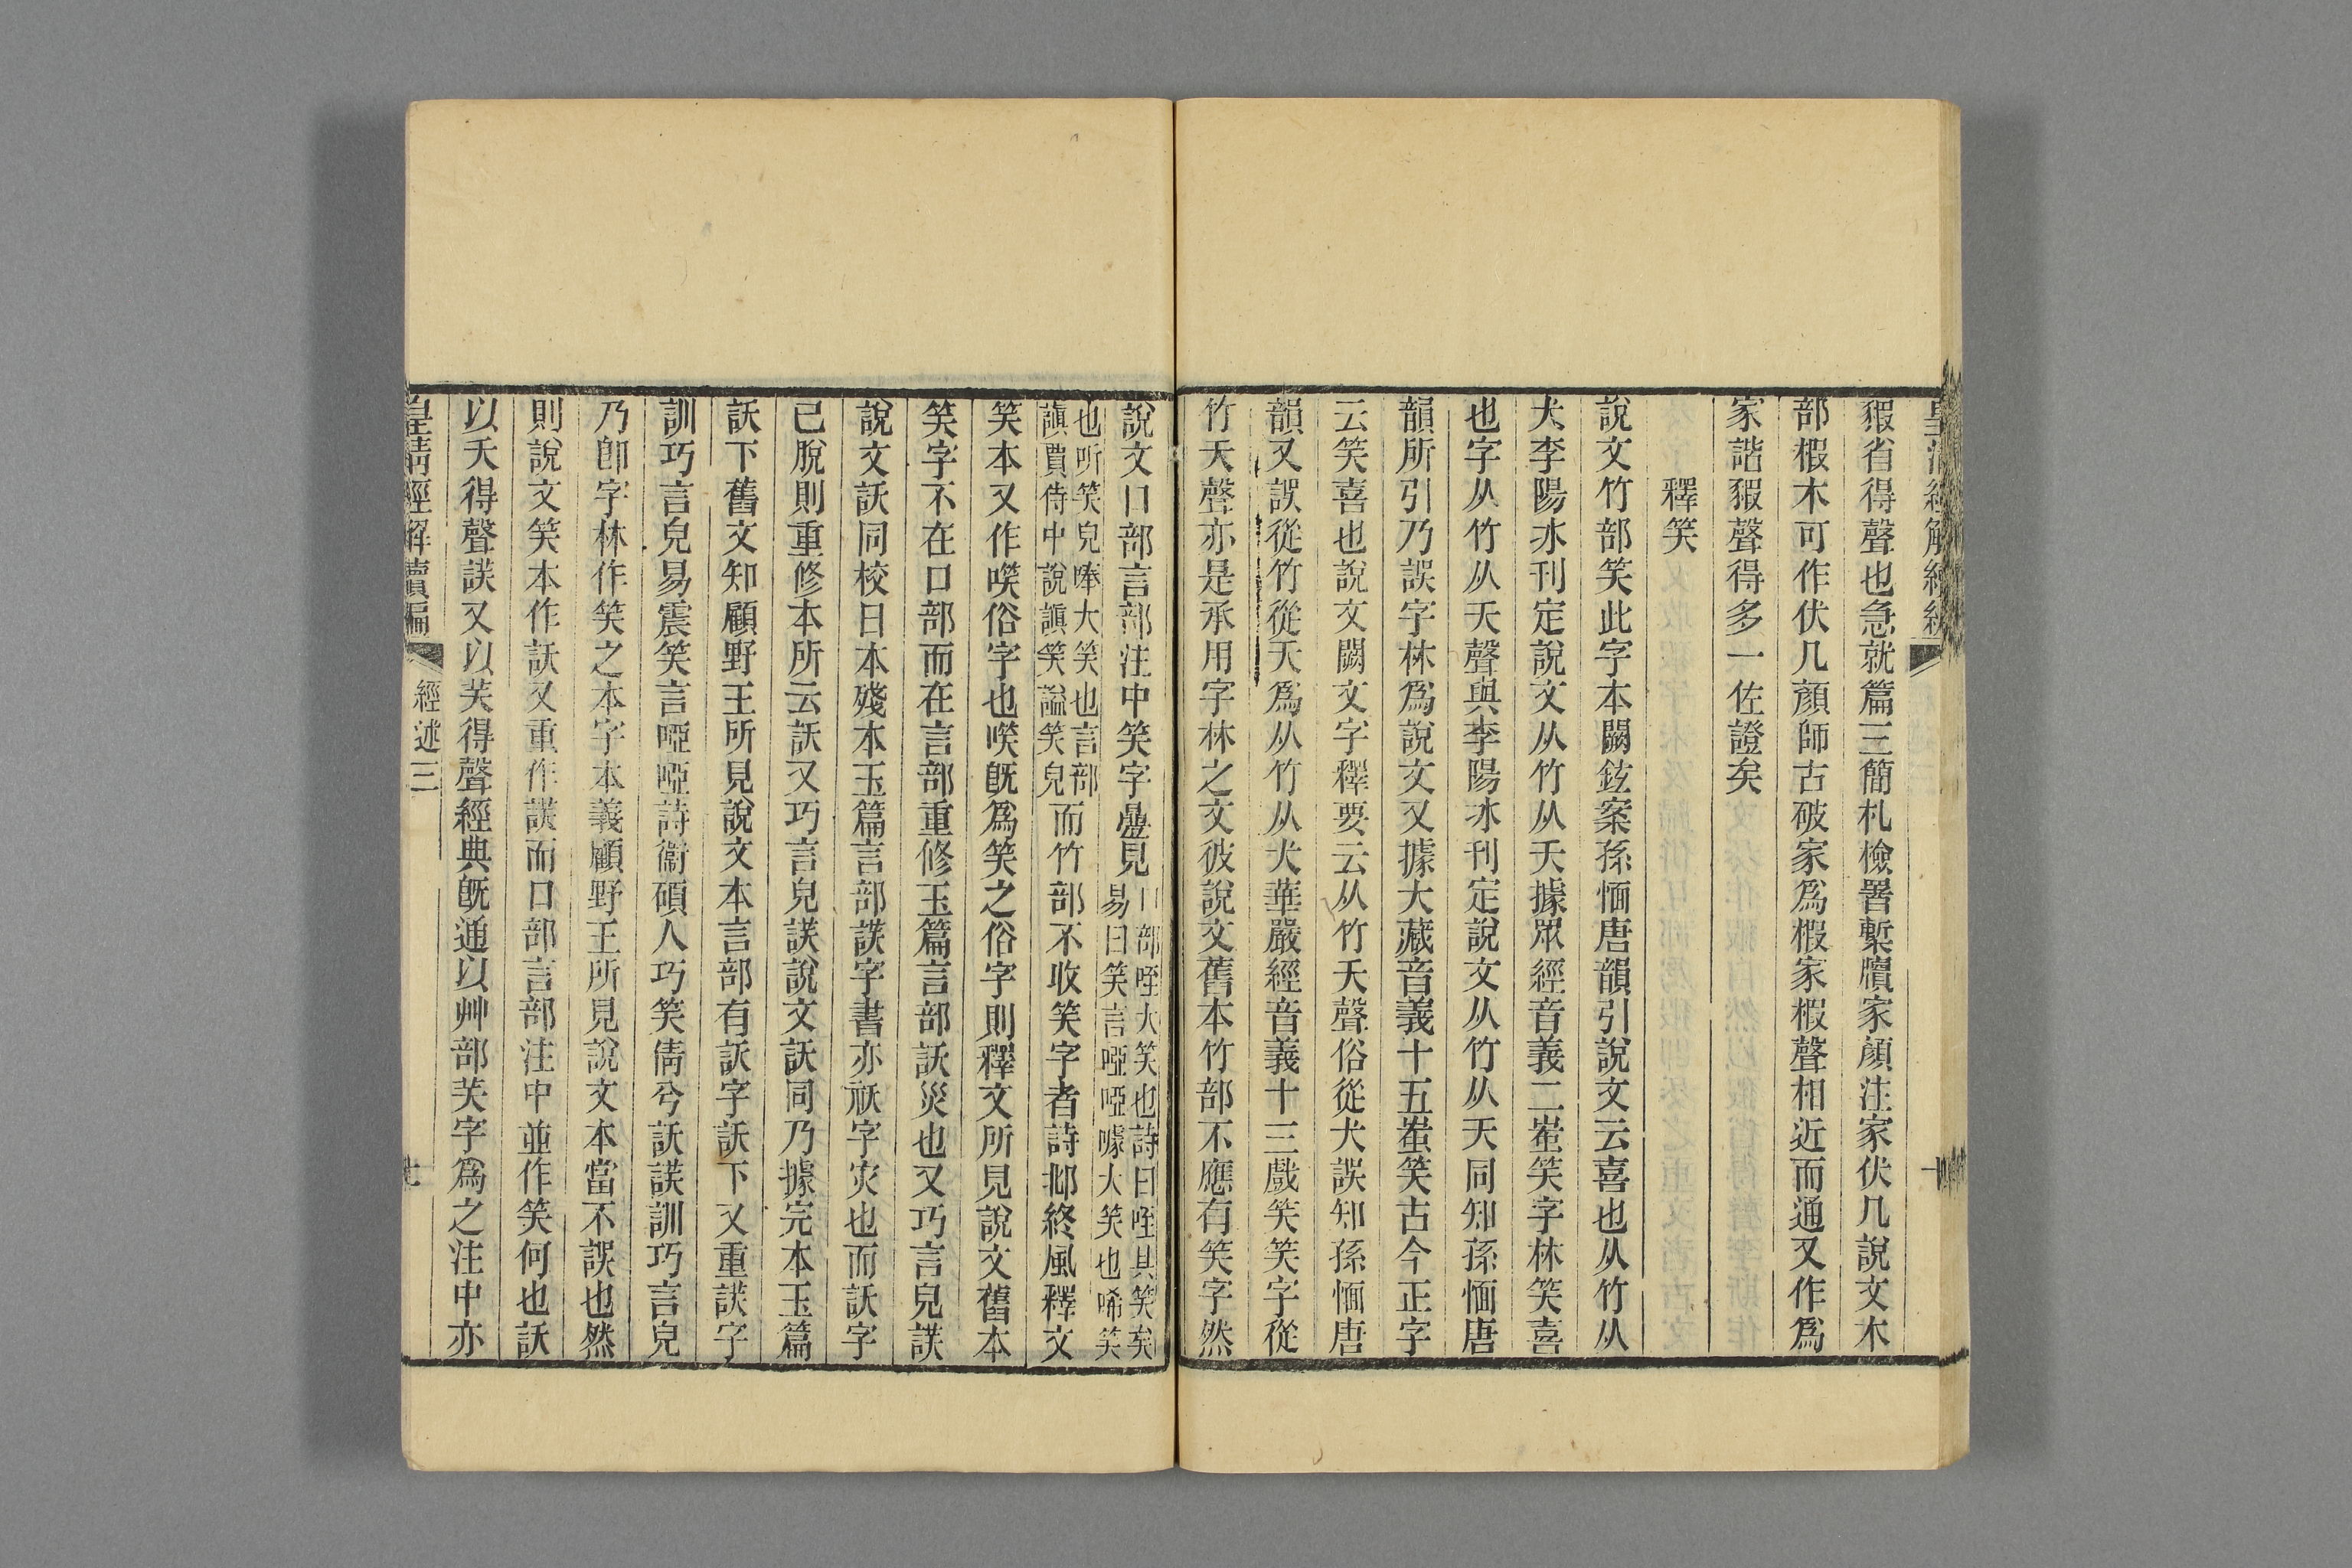 豭省得聲也急就篇三簡札檢署槧牘家顏注家伏几說文木
部椵木可作伏几顏師古破家爲椵家椵聲相近而通又作爲
家諧豭聲得多一佐證矣
釋笑
說文竹部笑此字本闕鉉案孫愐唐韻引說文云喜也从竹从
犬李陽冰刊定說文从竹从夭據眾經音義二𡴎笑字林笑喜
也字从竹从夭聲與李陽冰刊定說文从竹从夭同知孫愐唐
韻所引乃誤字林爲說文又據大藏音義十五𡴎笑古今正字
云笑喜也說文闕文字釋要云从竹夭聲俗從犬誤知孫愐唐
韻又誤從竹從夭爲从竹从犬華嚴經音義十三戲笑笑字從
竹夭聲亦是承用字林之文彼說文舊本竹部不應有笑字然
說文口部言部注中笑字疊見口部咥大笑也詩曰咥其笑矣
易曰笑言啞啞噱大笑也唏笑
也听笑皃唪大笑也言部
䜖賈侍中說䜖笑謚笑皃而竹部不收笑字者詩邶終風釋文
笑本又作㗛俗字也㗛既爲笑之俗字則釋文所見說文舊本
笑字不在口部而在言部重修玉篇言部訞災也又巧言皃䛂
說文訞同校日本殘本玉篇言部䛂字書亦祅字灾也而訞字
已脫則重修本所云訞又巧言皃䛂說文訞同乃據完本玉篇
訞下舊文知顧野王所見說文本言部有訞字訞下又重䛂字
訓巧言皃易震笑言啞啞詩衞碩人巧笑倩兮訞䛂訓巧言皃
乃卽字林作笑之本字本義顧野王所見說文本當不誤也然
則說文笑本作訞又重作䛂而口部言部注中並作笑何也訞
以夭得聲䛂又以芺得聲經典既通以艸部芺字爲之注中亦
皇清經解續編
經述三
七